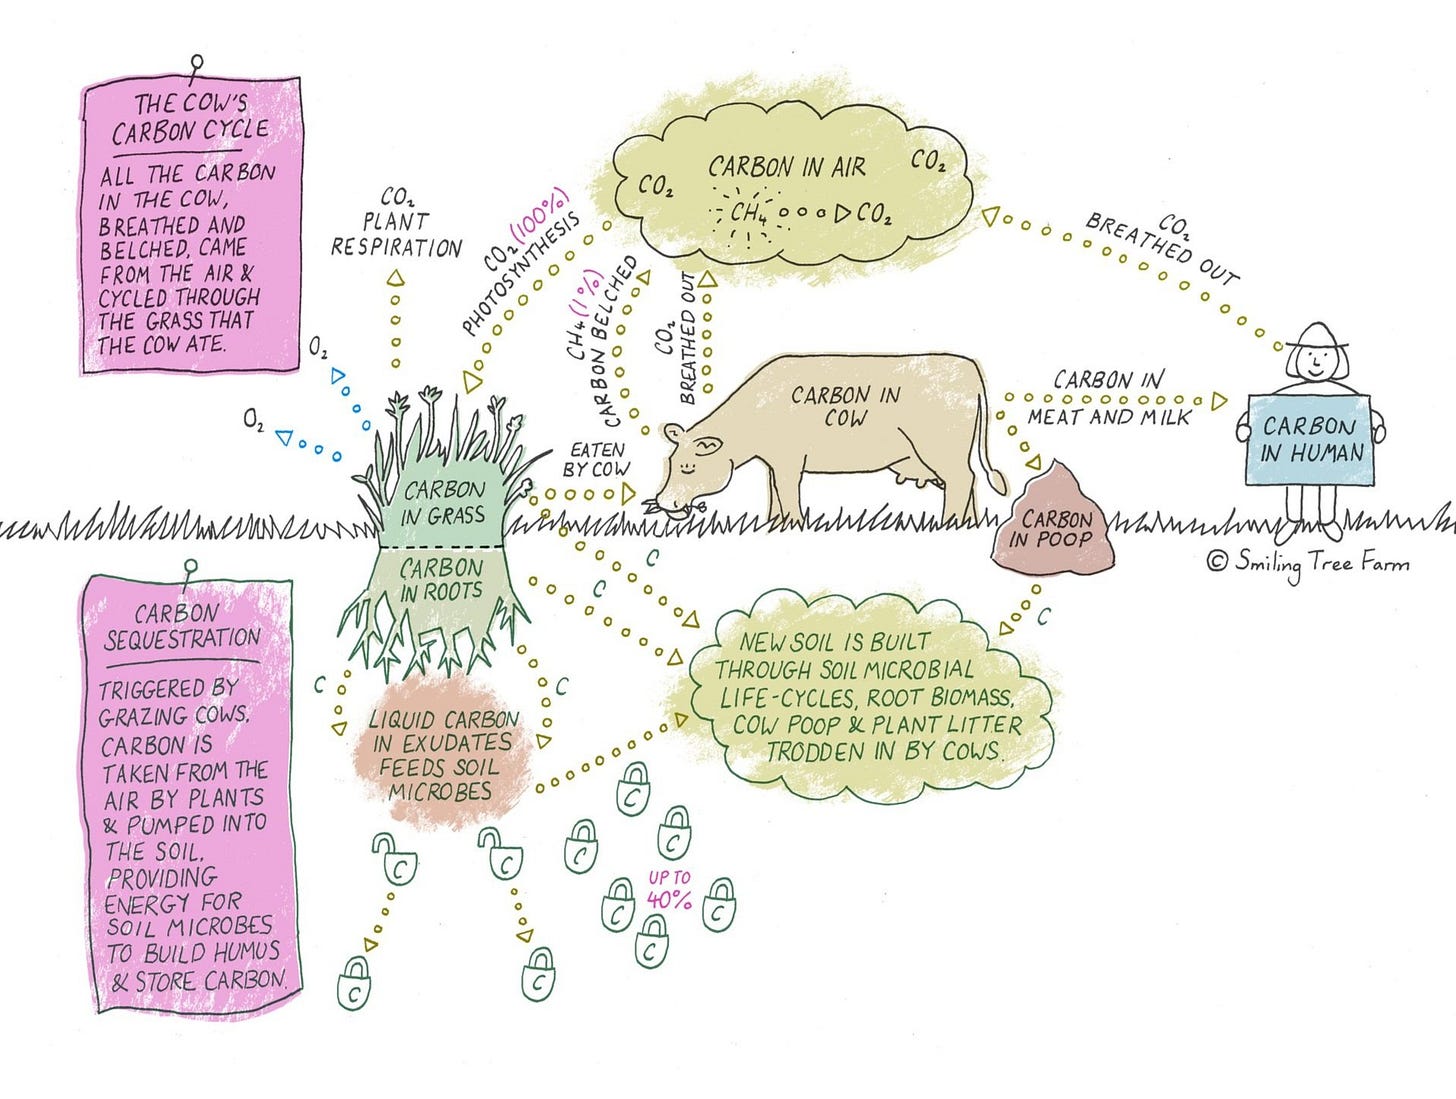 THE COW'S
CARBON CYCLE
ALL THE CARBON
IN THE COW,
BREATHED AND
BELCHED, CAME
FROM THE AIR &
CYCLED THROUGH
THE GRASS THAT
THE COW ATE.
CO₂
PLANT
RESPIRATION
O₂
O₂
CO₂ (100%)
PHOTOSYNTHESIS
CARBON IN AIR
CO₂
CO₂
CH₄ CO₂
CH₄ (1%)
CARBON BELCHED
CO₂
BREATHED OUT
CO₂
BREATHED OUT
CARBON IN
COW
CARBON IN
MEAT AND MILK
CARBON
IN HUMAN
EATEN
BY COW
CARBON
IN GRASS
CARBON
IN ROOTS
CARBON
IN POOP
© Smiling Tree Farm
C
C
C
C
C
CARBON
SEQUESTRATION
TRIGGERED BY
GRAZING COWS.
CARBON IS
TAKEN FROM THE
AIR BY PLANTS
& PUMPED INTO
THE SOIL,
PROVIDING
ENERGY FOR
SOIL MICROBES
TO BUILD HUMUS
& STORE CARBON.
LIQUID CARBON
IN EXUDATES
FEEDS SOIL
MICROBES
NEW SOIL IS BUILT
THROUGH SOIL MICROBIAL
LIFE-CYCLES, ROOT BIOMASS,
COW POOP & PLANT LITTER
TRODDEN IN BY COWS.
C
C
C
C
C
UP TO
40%
C
C
C
C
C